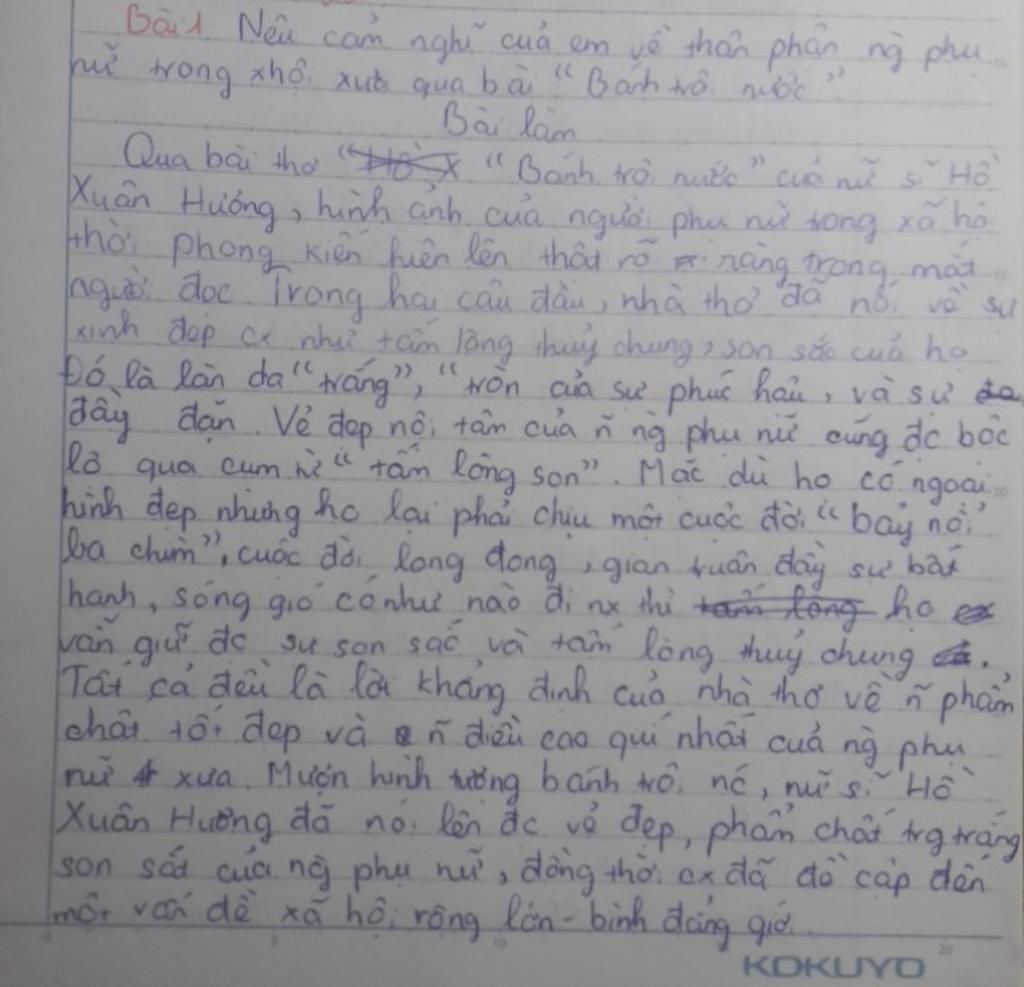 Bài 1. Nêu cảm nghĩ của em về thân phận ng phụ
nữ trong xhội xưa qua bài "Bánh trôi nước"
Bài làm
Qua bài thơ "Bánh trôi nước" của nữ sĩ Hồ
Xuân Hương, hình ảnh của người phụ nữ trong xã hội
thời phong kiến hiện lên thật rõ ràng trong mắt
người đọc. Trong hai câu đầu, nhà thơ đã nói về sự
xinh đẹp cx như tấm lòng thuỷ chung, son sắc của họ
Đó là làn da "trắng", "tròn của sự phúc hậu, và sự
đầy đặn. Vẻ đẹp nội tâm của ñ ng phụ nữ cũng đc bộc
lộ qua cụm từ "tấm lòng son". Mặc dù họ có ngoại
hình đẹp nhưng họ lại phải chịu một cuộc đời "bảy nổi
ba chìm", cuộc đời long đong, gian truân đầy sự bất
hạnh, sóng gió có như nào đi nx thì họ
vẫn giữ đc sự son sắc và tấm lòng thuỷ chung.
Tất cả đều là lời khẳng định của nhà thơ về ñ phẩm
chất tốt đẹp và ñ điều cao quí nhất của ng phụ
nữ xưa. Mượn hình tượng bánh trôi nc, nữ sĩ Hồ
Xuân Hương đã nói lên đc vẻ đẹp, phẩm chất trg trắng
son sắt của ng phụ nữ, đồng thời cx đã đề cập đến
một vấn đề xã hội rộng lớn - bình đẳng giới.
0 5 10 20
KOKUYO